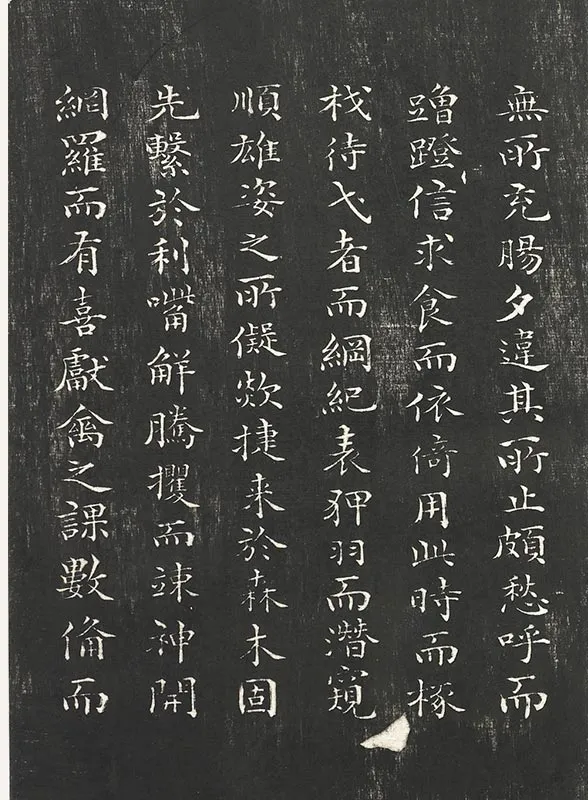 無所充腸夕違其所止頗愁呼而
蹭蹬信求食而依倚用此時而椓
杙待弋者而綱紀表狎羽而潛窺
順雄姿之所儗欻捷来於森木固
先繫於利嘴解騰攫而竦神開
網羅而有喜獻禽之課數備而